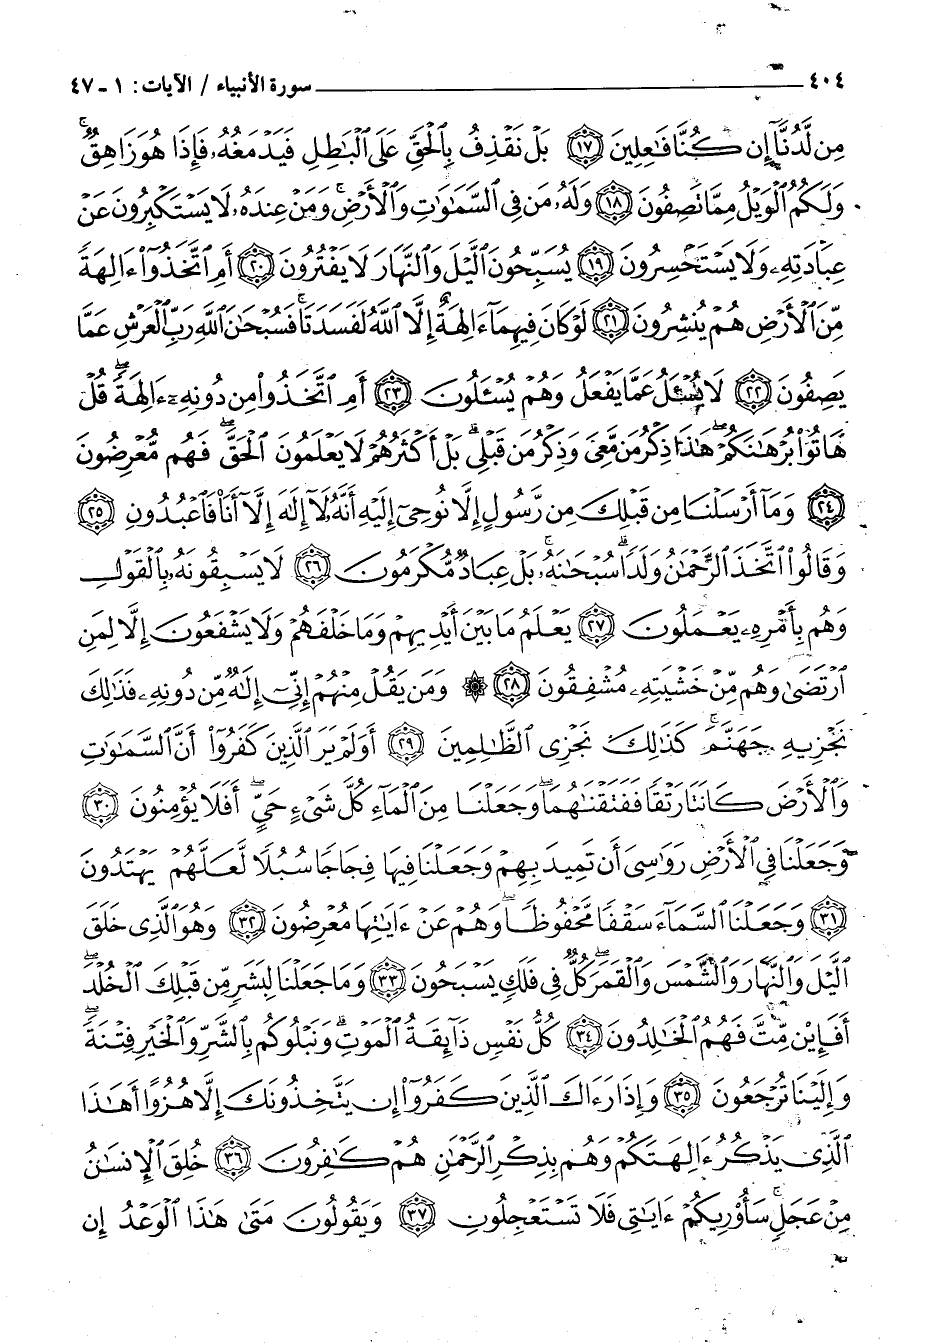 ٤٠٤ سورة الأنبياء / الآيات: ١ - ٤٧
مِن لَّدُنَّآ إِن كُنَّا فَٰعِلِينَ ١٧ بَلْ نَقْذِفُ بِٱلْحَقِّ عَلَى ٱلْبَٰطِلِ فَيَدْمَغُهُۥ فَإِذَا هُوَ زَاهِقٌ ۚ
وَلَكُمُ ٱلْوَيْلُ مِمَّا تَصِفُونَ ١٨ وَلَهُۥ مَن فِى ٱلسَّمَٰوَٰتِ وَٱلْأَرْضِ ۚ وَمَنْ عِندَهُۥ لَا يَسْتَكْبِرُونَ عَنْ
عِبَادَتِهِۦ وَلَا يَسْتَحْسِرُونَ ١٩ يُسَبِّحُونَ ٱلَّيْلَ وَٱلنَّهَارَ لَا يَفْتُرُونَ ٢٠ أَمِ ٱتَّخَذُوٓا۟ ءَالِهَةً
مِّنَ ٱلْأَرْضِ هُمْ يُنشِرُونَ ٢١ لَوْ كَانَ فِيهِمَآ ءَالِهَةٌ إِلَّا ٱللَّهُ لَفَسَدَتَا ۚ فَسُبْحَٰنَ ٱللَّهِ رَبِّ ٱلْعَرْشِ عَمَّا
يَصِفُونَ ٢٢ لَا يُسْـَٔلُ عَمَّا يَفْعَلُ وَهُمْ يُسْـَٔلُونَ ٢٣ أَمِ ٱتَّخَذُوا۟ مِن دُونِهِۦٓ ءَالِهَةً ۖ قُلْ
هَاتُوا۟ بُرْهَٰنَكُمْ ۖ هَٰذَا ذِكْرُ مَن مَّعِىَ وَذِكْرُ مَن قَبْلِى ۗ بَلْ أَكْثَرُهُمْ لَا يَعْلَمُونَ ٱلْحَقَّ ۖ فَهُم مُّعْرِضُونَ
٢٤ وَمَآ أَرْسَلْنَا مِن قَبْلِكَ مِن رَّسُولٍ إِلَّا نُوحِىٓ إِلَيْهِ أَنَّهُۥ لَآ إِلَٰهَ إِلَّآ أَنَا۠ فَٱعْبُدُونِ ٢٥
وَقَالُوا۟ ٱتَّخَذَ ٱلرَّحْمَٰنُ وَلَدًا ۗ سُبْحَٰنَهُۥ ۚ بَلْ عِبَادٌ مُّكْرَمُونَ ٢٦ لَا يَسْبِقُونَهُۥ بِٱلْقَوْلِ
وَهُم بِأَمْرِهِۦ يَعْمَلُونَ ٢٧ يَعْلَمُ مَا بَيْنَ أَيْدِيهِمْ وَمَا خَلْفَهُمْ وَلَا يَشْفَعُونَ إِلَّا لِمَنِ
ٱرْتَضَىٰ وَهُم مِّنْ خَشْيَتِهِۦ مُشْفِقُونَ ٢٨ ۞ وَمَن يَقُلْ مِنْهُمْ إِنِّىٓ إِلَٰهٌ مِّن دُونِهِۦ فَذَٰلِكَ
نَجْزِيهِ جَهَنَّمَ ۚ كَذَٰلِكَ نَجْزِى ٱلظَّٰلِمِينَ ٢٩ أَوَلَمْ يَرَ ٱلَّذِينَ كَفَرُوٓا۟ أَنَّ ٱلسَّمَٰوَٰتِ
وَٱلْأَرْضَ كَانَتَا رَتْقًا فَفَتَقْنَٰهُمَا ۖ وَجَعَلْنَا مِنَ ٱلْمَآءِ كُلَّ شَىْءٍ حَىٍّ ۖ أَفَلَا يُؤْمِنُونَ ٣٠
وَجَعَلْنَا فِى ٱلْأَرْضِ رَوَٰسِىَ أَن تَمِيدَ بِهِمْ وَجَعَلْنَا فِيهَا فِجَاجًا سُبُلًا لَّعَلَّهُمْ يَهْتَدُونَ
٣١ وَجَعَلْنَا ٱلسَّمَآءَ سَقْفًا مَّحْفُوظًا ۖ وَهُمْ عَنْ ءَايَٰتِهَا مُعْرِضُونَ ٣٢ وَهُوَ ٱلَّذِى خَلَقَ
ٱلَّيْلَ وَٱلنَّهَارَ وَٱلشَّمْسَ وَٱلْقَمَرَ ۖ كُلٌّ فِى فَلَكٍ يَسْبَحُونَ ٣٣ وَمَا جَعَلْنَا لِبَشَرٍ مِّن قَبْلِكَ ٱلْخُلْدَ ۖ
أَفَإِي۟ن مِّتَّ فَهُمُ ٱلْخَٰلِدُونَ ٣٤ كُلُّ نَفْسٍ ذَآئِقَةُ ٱلْمَوْتِ ۗ وَنَبْلُوكُم بِٱلشَّرِّ وَٱلْخَيْرِ فِتْنَةً ۖ
وَإِلَيْنَا تُرْجَعُونَ ٣٥ وَإِذَا رَءَاكَ ٱلَّذِينَ كَفَرُوٓا۟ إِن يَتَّخِذُونَكَ إِلَّا هُزُوًا أَهَٰذَا
ٱلَّذِى يَذْكُرُ ءَالِهَتَكُمْ وَهُم بِذِكْرِ ٱلرَّحْمَٰنِ هُمْ كَٰفِرُونَ ٣٦ خُلِقَ ٱلْإِنسَٰنُ
مِنْ عَجَلٍ ۚ سَأُو۟رِيكُمْ ءَايَٰتِى فَلَا تَسْتَعْجِلُونِ ٣٧ وَيَقُولُونَ مَتَىٰ هَٰذَا ٱلْوَعْدُ إِن